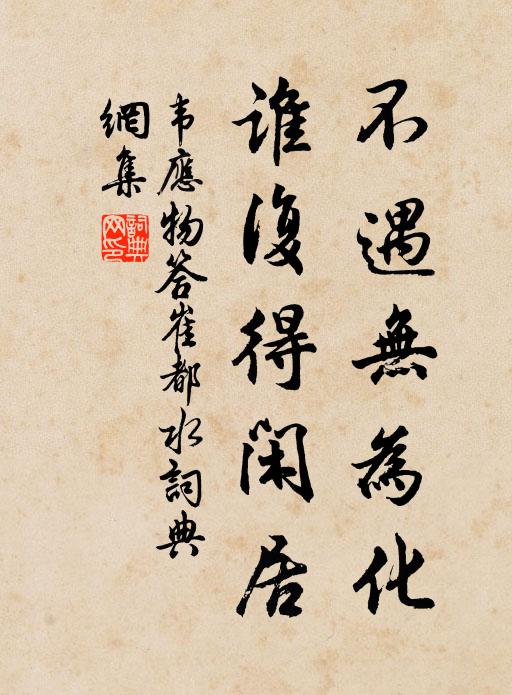 不遇無為化
誰復得閑居
韦應物答崔都水詞典
網集
詞典
网印